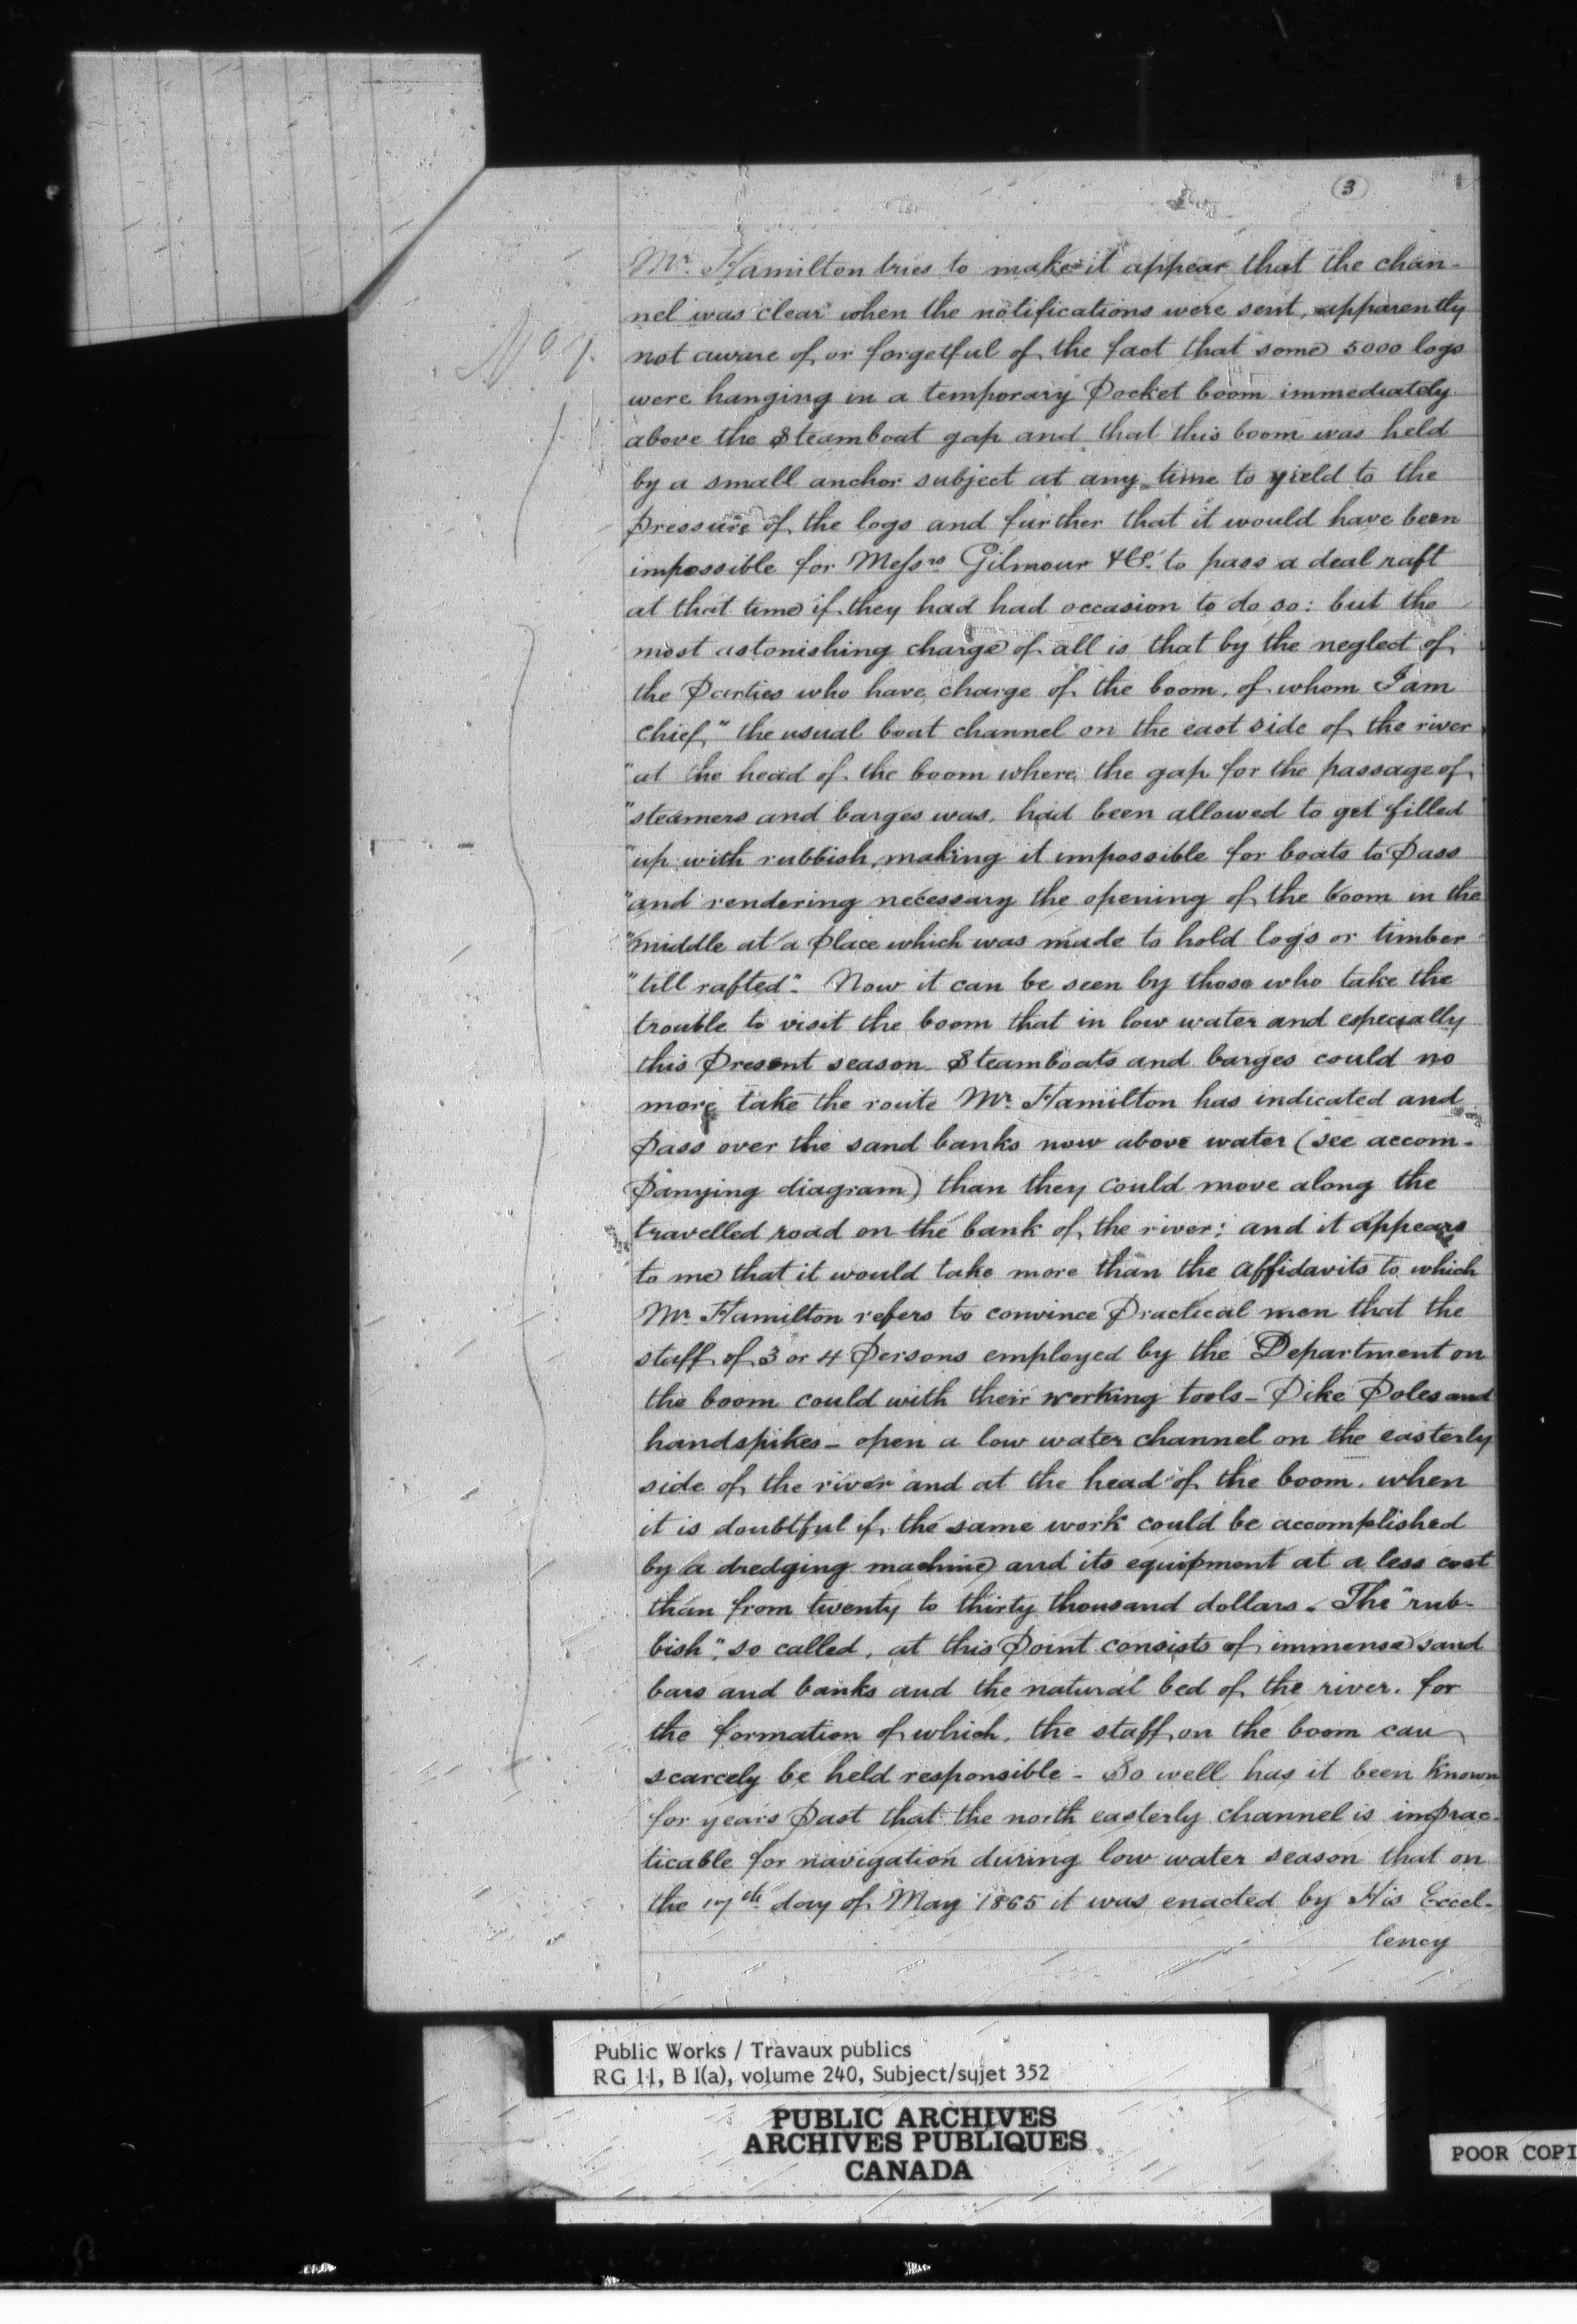 3
Mr. Hamilton tries to make it appear that the chan-
nel was clear when the notifications were sent, apparently
not aware of or forgetful of the fact that some 5000 logs
were hanging in a temporary Pocket boom immediately
above the Steamboat gap and that this boom was held
by a small anchor subject at any time to yield to the
Pressure of the logs and further that it would have been
impossible for Messrs Gilmour & Co. to pass a deal raft
at that time if they had had occasion to do so: but the
most astonishing charge of all is that by the neglect of
the Parties who have charge of the boom, of whom I am
chief, "the usual boat channel on the east side of the river
"at the head of the boom where the gap for the passage of
"steamers and barges was, had been allowed to get filled
"up with rubbish, making it impossible for boats to Pass
"and rendering necessary the opening of the boom in the
"middle at a Place which was made to hold logs or timber
"till rafted". Now it can be seen by those who take the
trouble to visit the boom that in low water and especially
this Present season Steamboats and barges could no
more take the route Mr. Hamilton has indicated and
Pass over the sand banks now above water (see accom-
Panying diagram) than they could move along the
travelled road on the bank of the river; and it appears
to me that it would take more than the affidavits to which
Mr. Hamilton refers to convince Practical men that the
staff of 3 or 4 Persons employed by the Department on
the boom could with their working tools - Pike Poles and
handspikes - open a low water channel on the easterly
side of the river and at the head of the boom, when
it is doubtful if the same work could be accomplished
by a dredging machine and its equipment at a less cost
than from twenty to thirty thousand dollars. The "rub-
bish", so called, at this Point consists of immense sand
bars and banks and the natural bed of the river, for
the formation of which, the staff on the boom can
scarcely be held responsible - So well has it been Known
for years Past that the north easterly channel is imprac-
ticable for navigation during low water season that on
the 17th day of May 1865 it was enacted by His Excel-
lency
Public Works / Travaux publics
RG 11, B 1(a), volume 240, Subject/sujet 352
PUBLIC ARCHIVES
ARCHIVES PUBLIQUES
CANADA
POOR COPI